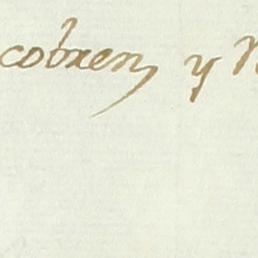 cobren, y